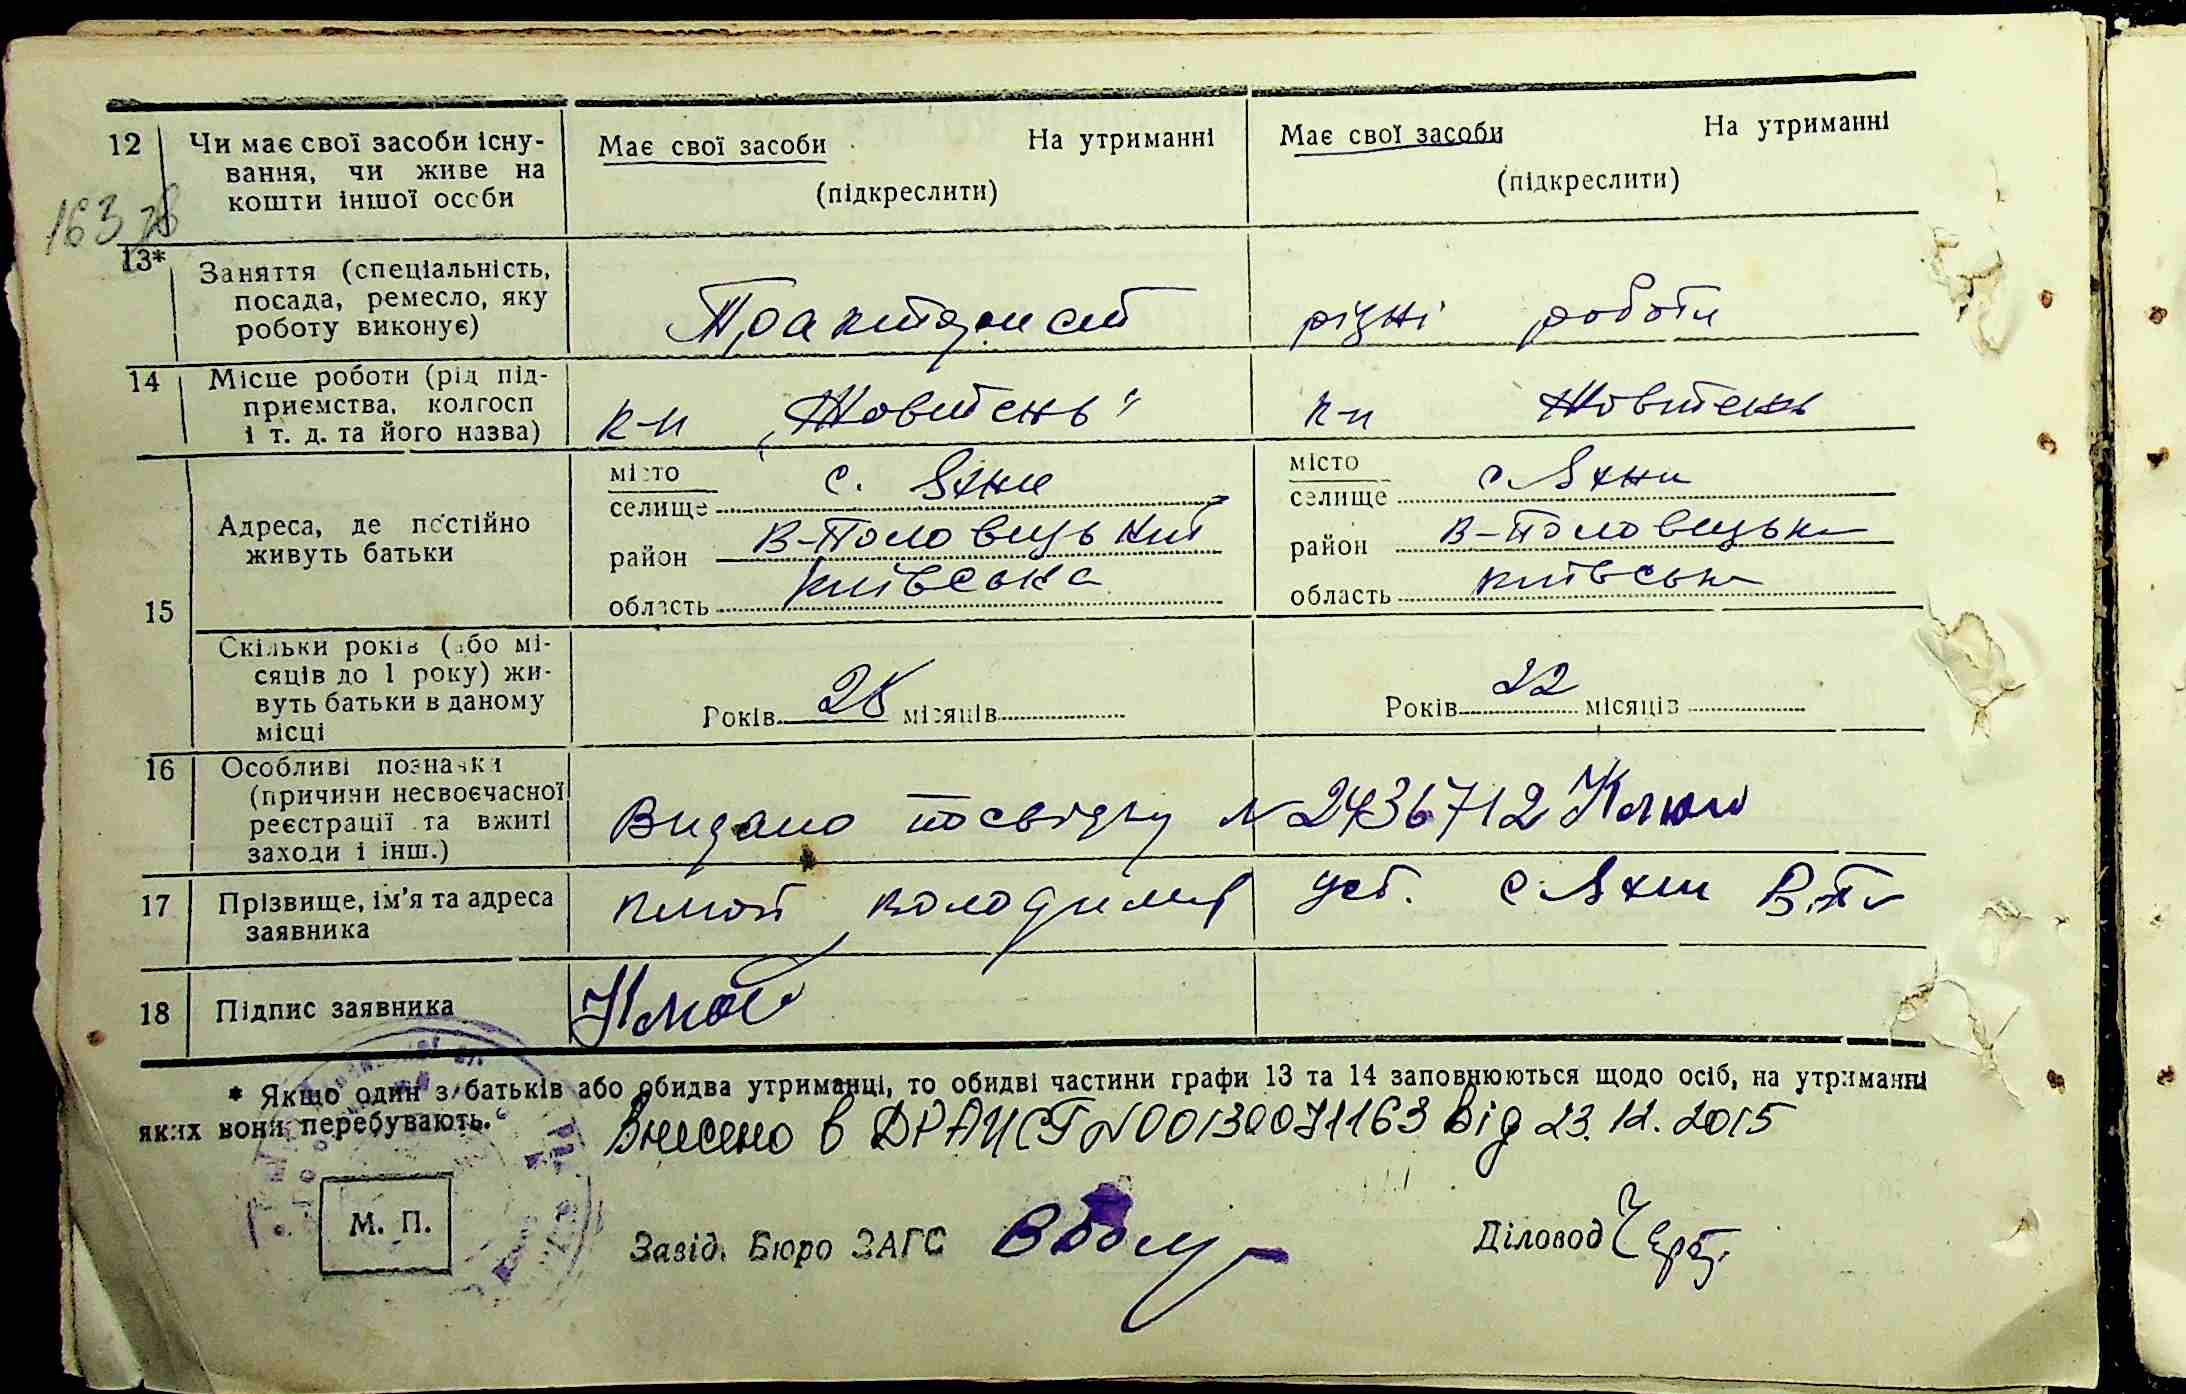 12 Чи має свої засоби існу-
вання, чи живе на
кошти іншої особи
Має свої засоби На утриманні
(підкреслити)
Має свої засоби На утриманні
(підкреслити)
163
13* Заняття (спеціальність,
посада, ремесло, яку
роботу виконує)
Тракторист
різні роботи
14 Місце роботи (рід під-
приємства, колгосп
і т. д. та його назва)
к-п „Жовтень"
к-п Жовтень
15 Адреса, де постійно
живуть батьки
місто
селище с. Яхни
район В-Половецький
область Київська
місто
селище с. Яхни
район В-Половецьк
область Київськ
Скільки років (або мі-
сяців до 1 року) жи-
вуть батьки в даному
місці
Років 28 місяців
Років 22 місяців
16 Особливі познаяки
(причини несвоєчасної
реєстрації та вжиті
заходи і інш.)
Видано посвідку N 2436712
17 Прізвище, ім'я та адреса
заявника
володимир уст. с Яхни В.П
18 Підпис заявника
* Якщо один з батьків або обидва утриманці, то обидві частини графи 13 та 14 заповнюються щодо осіб, на утриманні
яких вони перебувають.
Внесено в ДРАЦСГ N00130071163 від 23.12.2015
М. П.
Завід. Бюро ЗАГС
Діловод